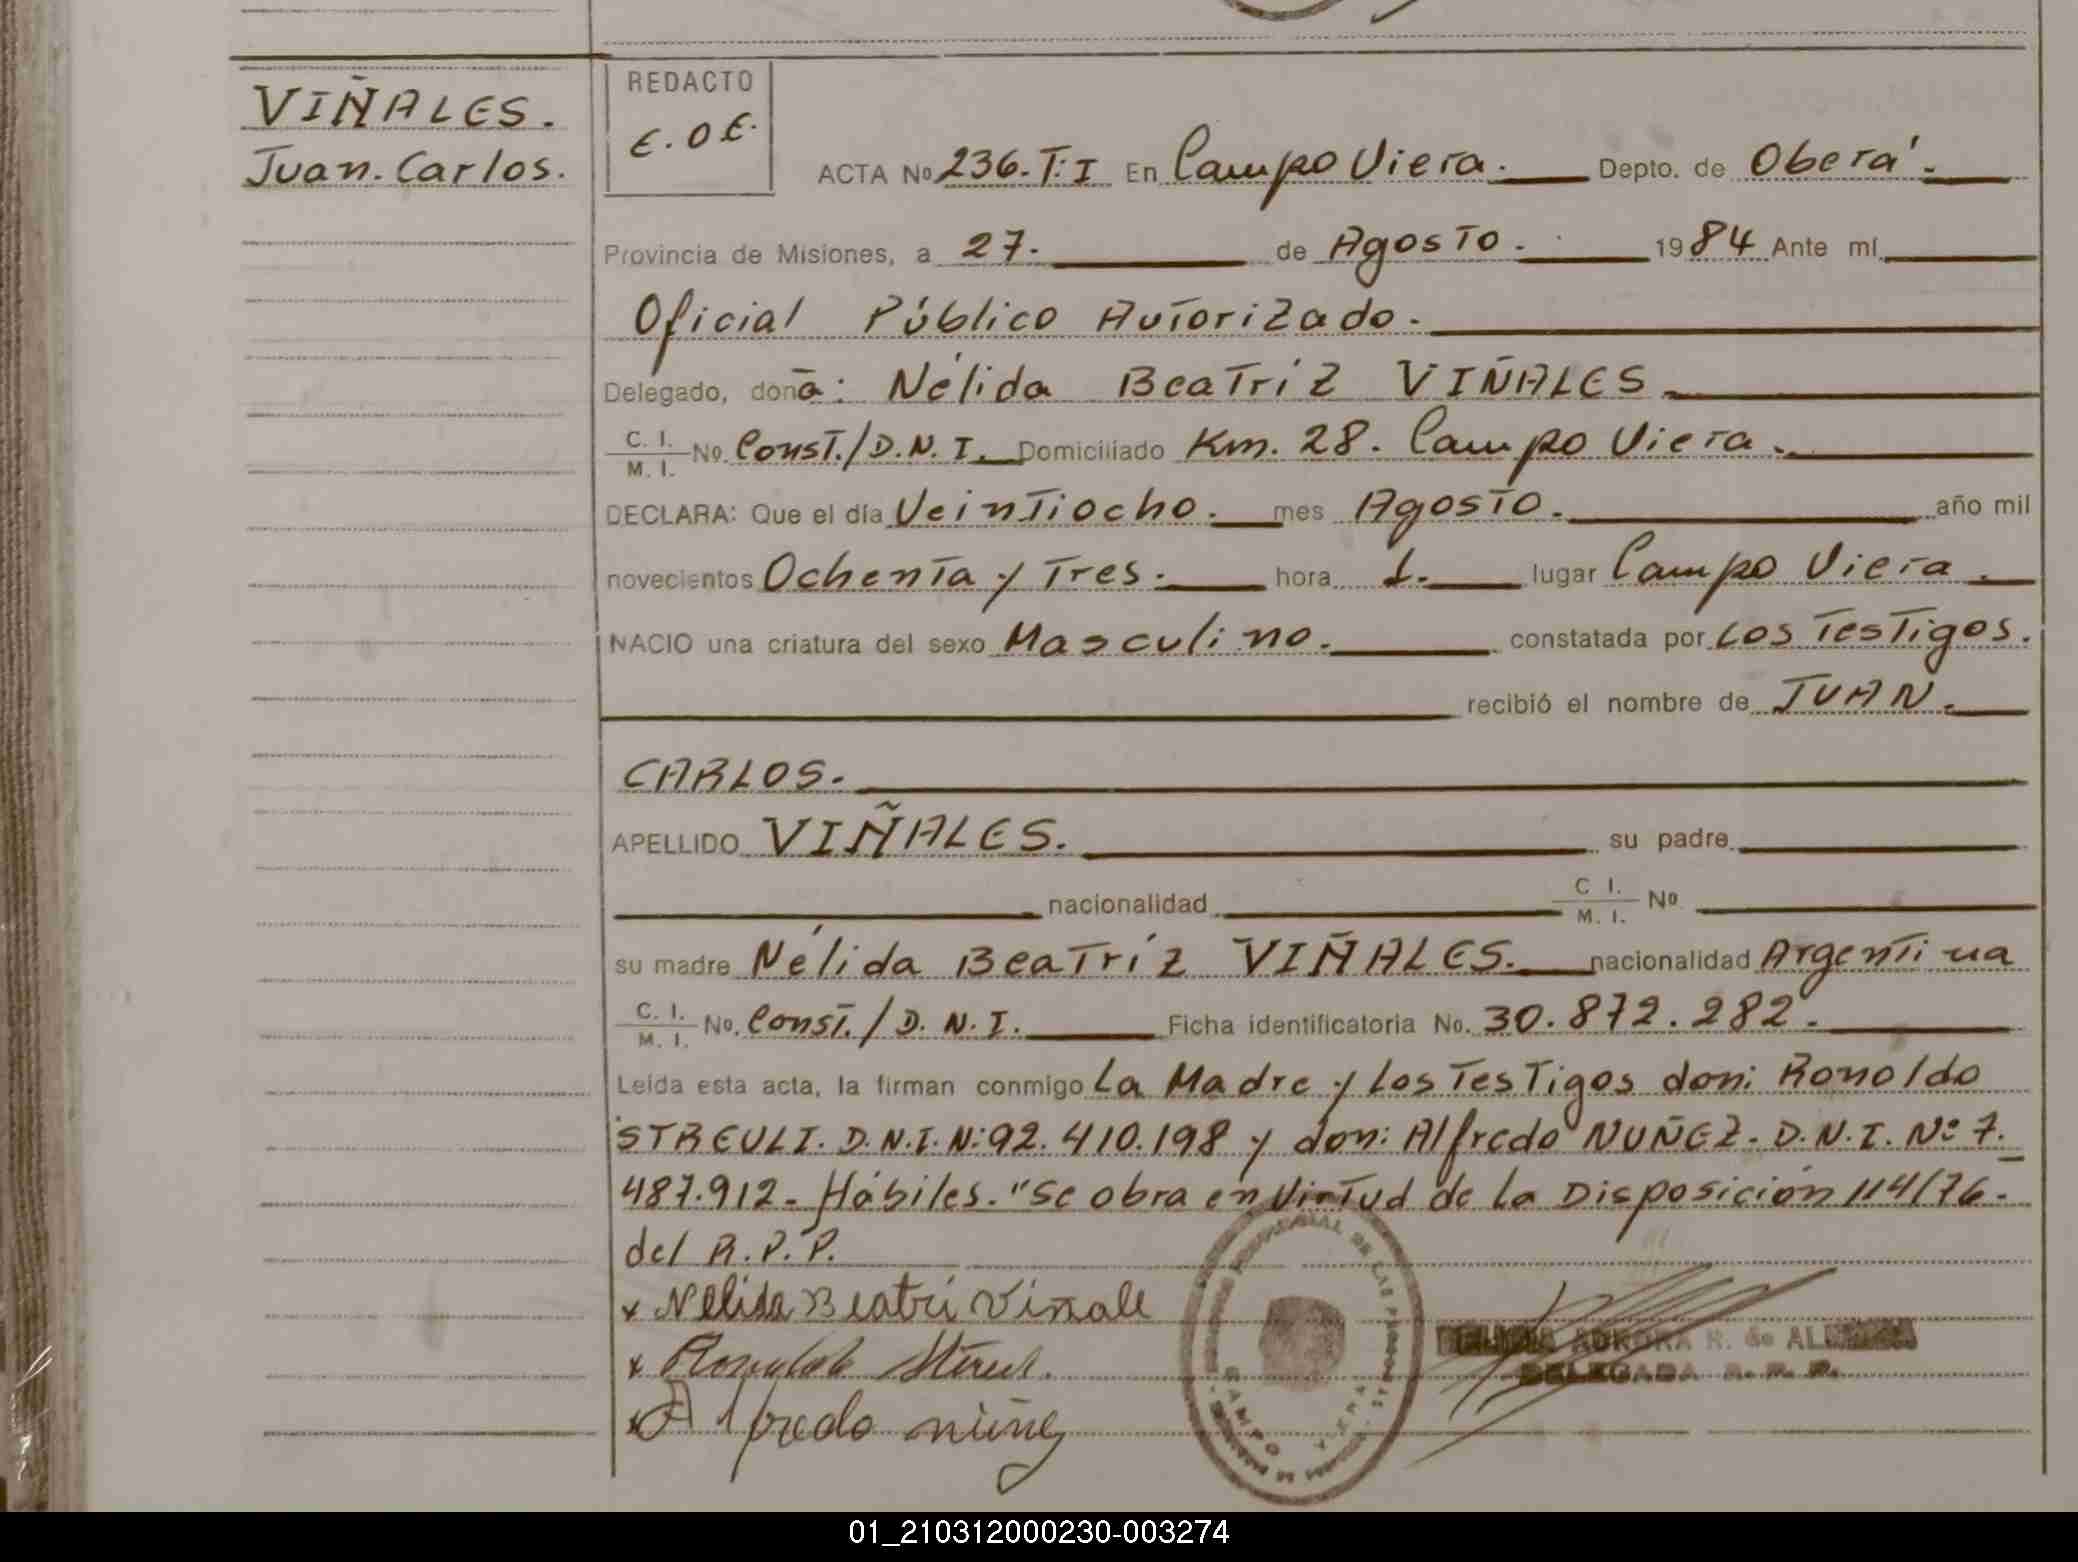 VIÑALES.
Juan. Carlos.
REDACTO
E. O E.
ACTA Nº 236. T: I En Campo Viera. Depto. de Oberá.
Provincia de Misiones, a 27. de Agosto. 1984 Ante mí
Oficial Público Autorizado.
Delegado, doña: Nélida Beatríz VIÑALES
C. I. M. I. Nº Const./D.N.I. Domiciliado Km. 28. Campo Viera.
DECLARA: Que el día Veintiocho. mes Agosto. año mil
novecientos Ochenta y Tres. hora 1. lugar Campo Viera.
NACIO una criatura del sexo Masculino. constatada por Los Testigos.
recibió el nombre de JUAN.
CARLOS.
APELLIDO VIÑALES. su padre
nacionalidad C I. M. I. Nº
su madre Nélida Beatríz VIÑALES. nacionalidad Argentina
C. I. M. I. Nº. Const./D. N. I. Ficha identificatoria No. 30.872.282.
Leída esta acta, la firman conmigo La Madre y Los Testigos don: Ronoldo
STREULI. D.N.I. N: 92.410.198 y don: Alfredo NUÑEZ. D.N.I. Nº 7.
487.912- Hábiles. "Se obra en Virtud de La Disposición 114/76.
del R.P.P.
x Nelida Beatri Viñale
x
x Alfredo nuñez
DE LAS
CAMPO VIERA
AURORA R. de
DELEGADA R. P. P.
01_210312000230-003274